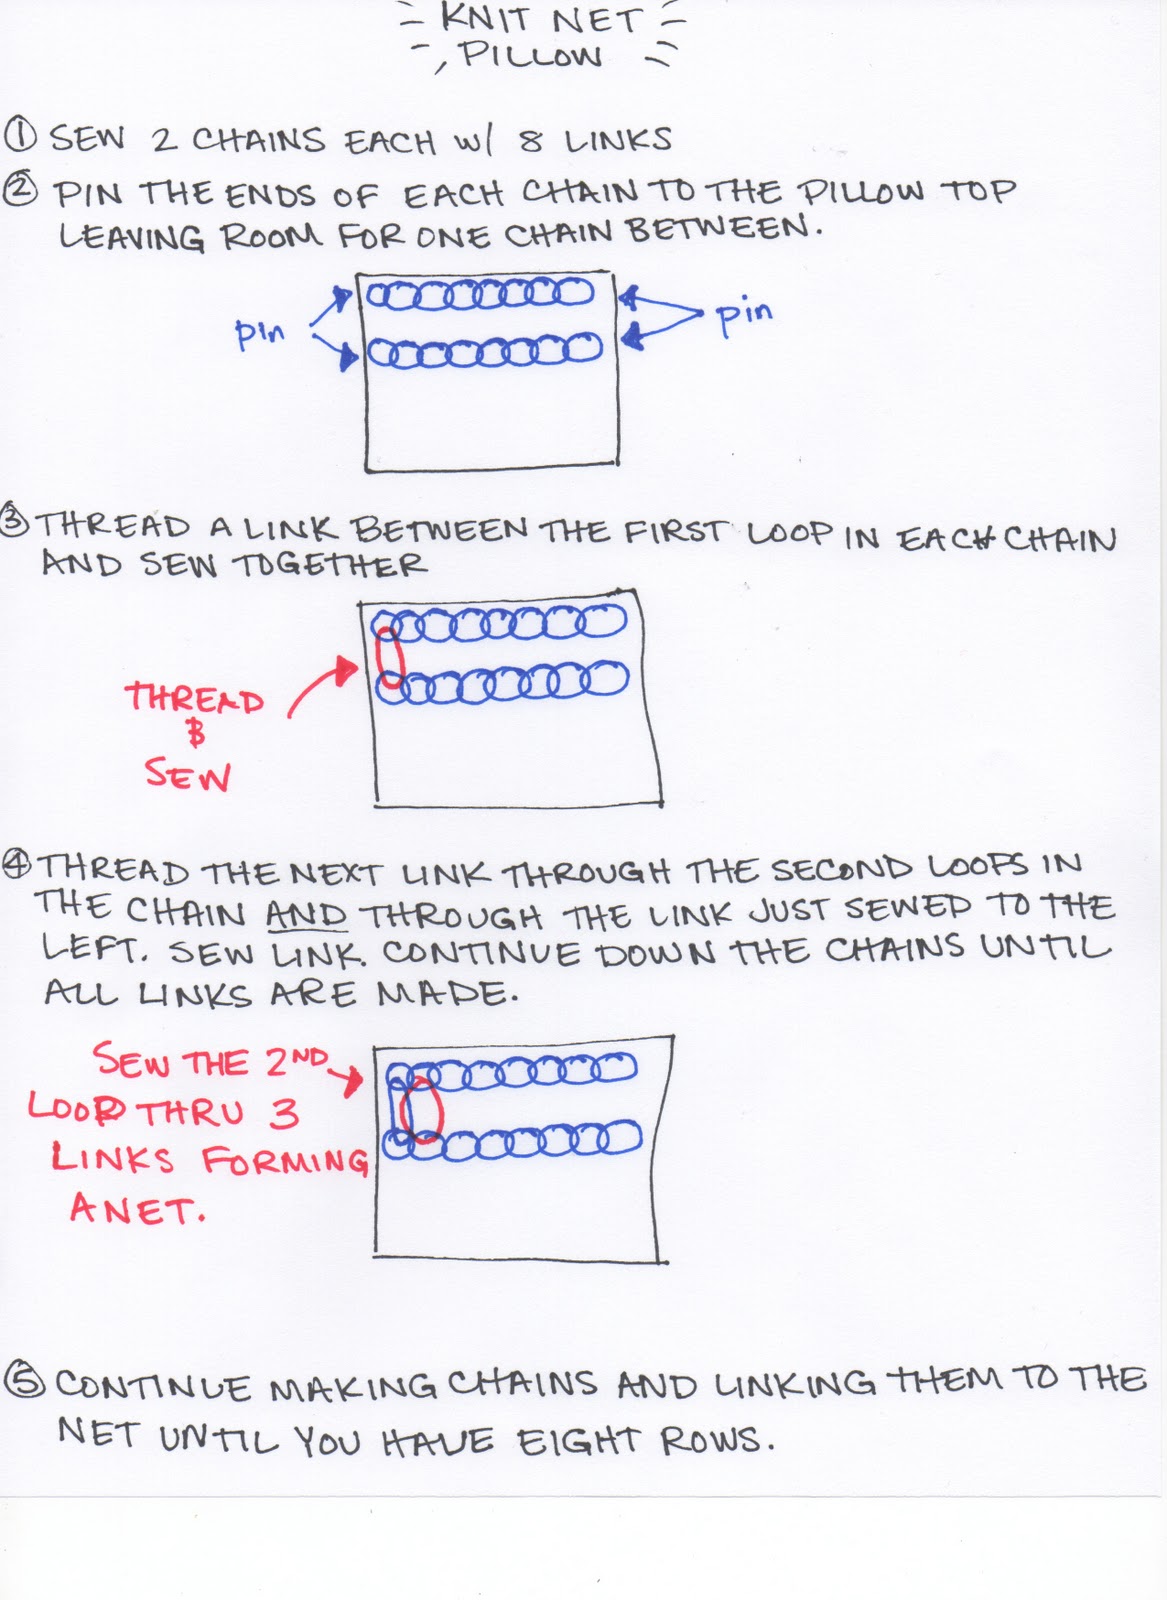 KNIT NET
PILLOW
① SEW 2 CHAINS EACH W/ 8 LINKS
② PIN THE ENDS OF EACH CHAIN TO THE PILLOW TOP
LEAVING ROOM FOR ONE CHAIN BETWEEN.
pin
pin
③ THREAD A LINK BETWEEN THE FIRST LOOP IN EACH CHAIN
AND SEW TOGETHER
THREAD
&
SEW
④ THREAD THE NEXT LINK THROUGH THE SECOND LOOPS IN
THE CHAIN AND THROUGH THE LINK JUST SEWED TO THE
LEFT. SEW LINK. CONTINUE DOWN THE CHAINS UNTIL
ALL LINKS ARE MADE.
SEW THE 2ND
LOOP THRU 3
LINKS FORMING
A NET.
⑤ CONTINUE MAKING CHAINS AND LINKING THEM TO THE
NET UNTIL YOU HAVE EIGHT ROWS.